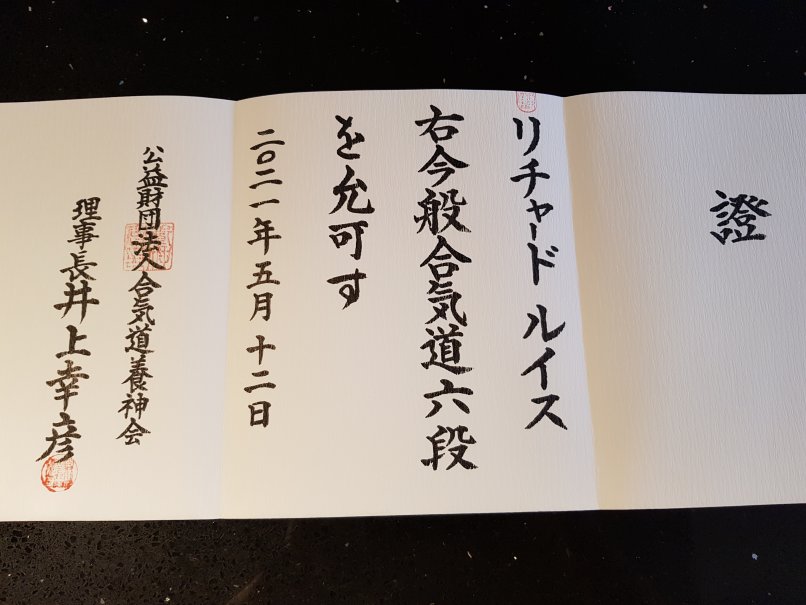 證
リチャード ルイス
右今般合気道六段
を允可す
二〇二一年五月十二日
公益財団法人合気道養神会
理事長井上幸彦